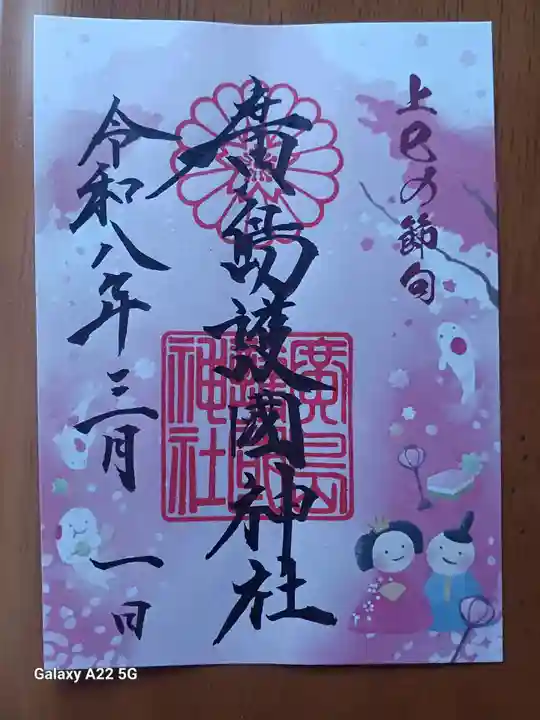 上巳の節句
廣島護國神社
廣島護國神社
令和八年三月 一日
Galaxy A22 5G